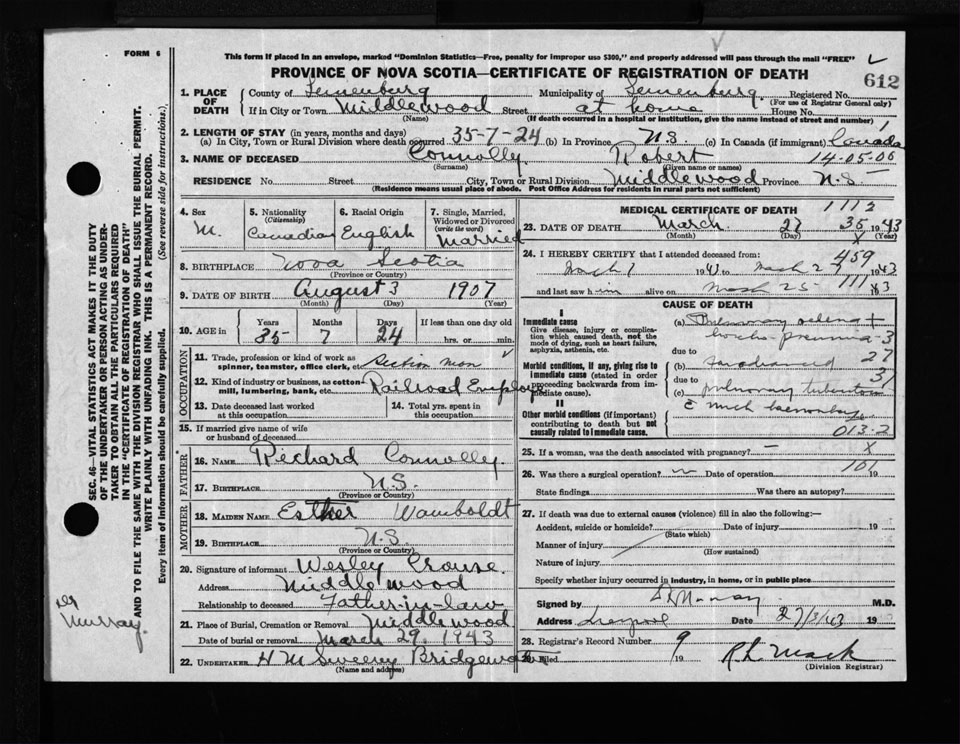 FORM 6
This form if placed in an envelope, marked "Dominion Statistics—Free, penalty for improper use $300," and properly addressed will pass through the mail "FREE"
612
PROVINCE OF NOVA SCOTIA—CERTIFICATE OF REGISTRATION OF DEATH
1. PLACE OF DEATH
County of Lunenburg Municipality of Lunenburg Registered No.
(For use of Registrar General only)
If in City or Town Middlewood Street at home House No.
(Name) (If death occurred in a hospital or institution, give the name instead of street and number)
2. LENGTH OF STAY (in years, months and days)
(a) In City, Town or Rural Division where death occurred 35-7-24 (b) In Province N.S. (c) In Canada (if immigrant) Canada
3. NAME OF DECEASED Connolly Robert 14-05-06
(Surname) (Given name or names)
RESIDENCE No. Street City, Town or Rural Division Middlewood Province N.S.
(Residence means usual place of abode. Post Office Address for residents in rural parts not sufficient)
4. Sex M.
5. Nationality (Citizenship) Canadian
6. Racial Origin English
7. Single, Married, Widowed or Divorced (write the word) Married
8. BIRTHPLACE Nova Scotia
(Province or Country)
9. DATE OF BIRTH August 3 1907
(Month) (Day) (Year)
10. AGE in Years 35 Months 7 Days 24 If less than one day old hrs. or min.
OCCUPATION
11. Trade, profession or kind of work as spinner, teamster, office clerk, etc. Section man
12. Kind of industry or business, as cotton-mill, lumbering, bank, etc. Railroad Employee
13. Date deceased last worked at this occupation
14. Total yrs. spent in this occupation
15. If married give name of wife or husband of deceased
FATHER
16. NAME Richard Connolly
17. BIRTHPLACE N.S.
(Province or Country)
MOTHER
18. MAIDEN NAME Esther Wamboldt
19. BIRTHPLACE N.S.
(Province or Country)
20. Signature of informant Wesley Crouse
Address Middlewood
Relationship to deceased Father-in-law
21. Place of Burial, Cremation or Removal Middlewood
Date of burial or removal March 29, 1943
22. UNDERTAKER H M Sweeny Bridgewater
(Name and address)
MEDICAL CERTIFICATE OF DEATH 1112
23. DATE OF DEATH March 27 35 1943
(Month) (Day) (Year)
24. I HEREBY CERTIFY that I attended deceased from: 459
March 1 to March 27 1943
and last saw him alive on March 25 111
CAUSE OF DEATH
I
Immediate cause
Give disease, injury or complication which caused death, not the mode of dying, such as heart failure, asphyxia, asthenia, etc.
(a) Pulmonary oedema +
broncho-pneumonia - 3
due to 27
Morbid conditions, if any, giving rise to immediate cause (stated in order proceeding backwards from immediate cause).
(b)
due to 31
(c) pulmonary
II
Other morbid conditions (if important) contributing to death but not causally related to immediate cause.
much
013-2
25. If a woman, was the death associated with pregnancy? — X
26. Was there a surgical operation? Date of operation 101 19
State findings Was there an autopsy?
27. If death was due to external causes (violence) fill in also the following:—
Accident, suicide or homicide? Date of injury 19
(State which)
Manner of injury
(How sustained)
Nature of injury
Specify whether injury occurred in industry, in home, or in public place
Signed by Murray M.D.
Address Liverpool Date 27/3/43 19
28. Registrar's Record Number 9
29. Filed 19 R.L. Mack
(Division Registrar)
SEC. 46—VITAL STATISTICS ACT MAKES IT THE DUTY
OF THE UNDERTAKER OR PERSON ACTING AS UNDER-
TAKER TO OBTAIN ALL THE PARTICULARS REQUIRED
IN THE "CERTIFICATE OF REGISTRATION OF DEATH"
AND TO FILE THE SAME WITH THE DIVISION REGISTRAR WHO SHALL ISSUE THE BURIAL PERMIT.
WRITE PLAINLY WITH UNFADING INK. THIS IS A PERMANENT RECORD.
Every item of information should be carefully supplied. (See reverse side for instructions.)
Dr
Murray